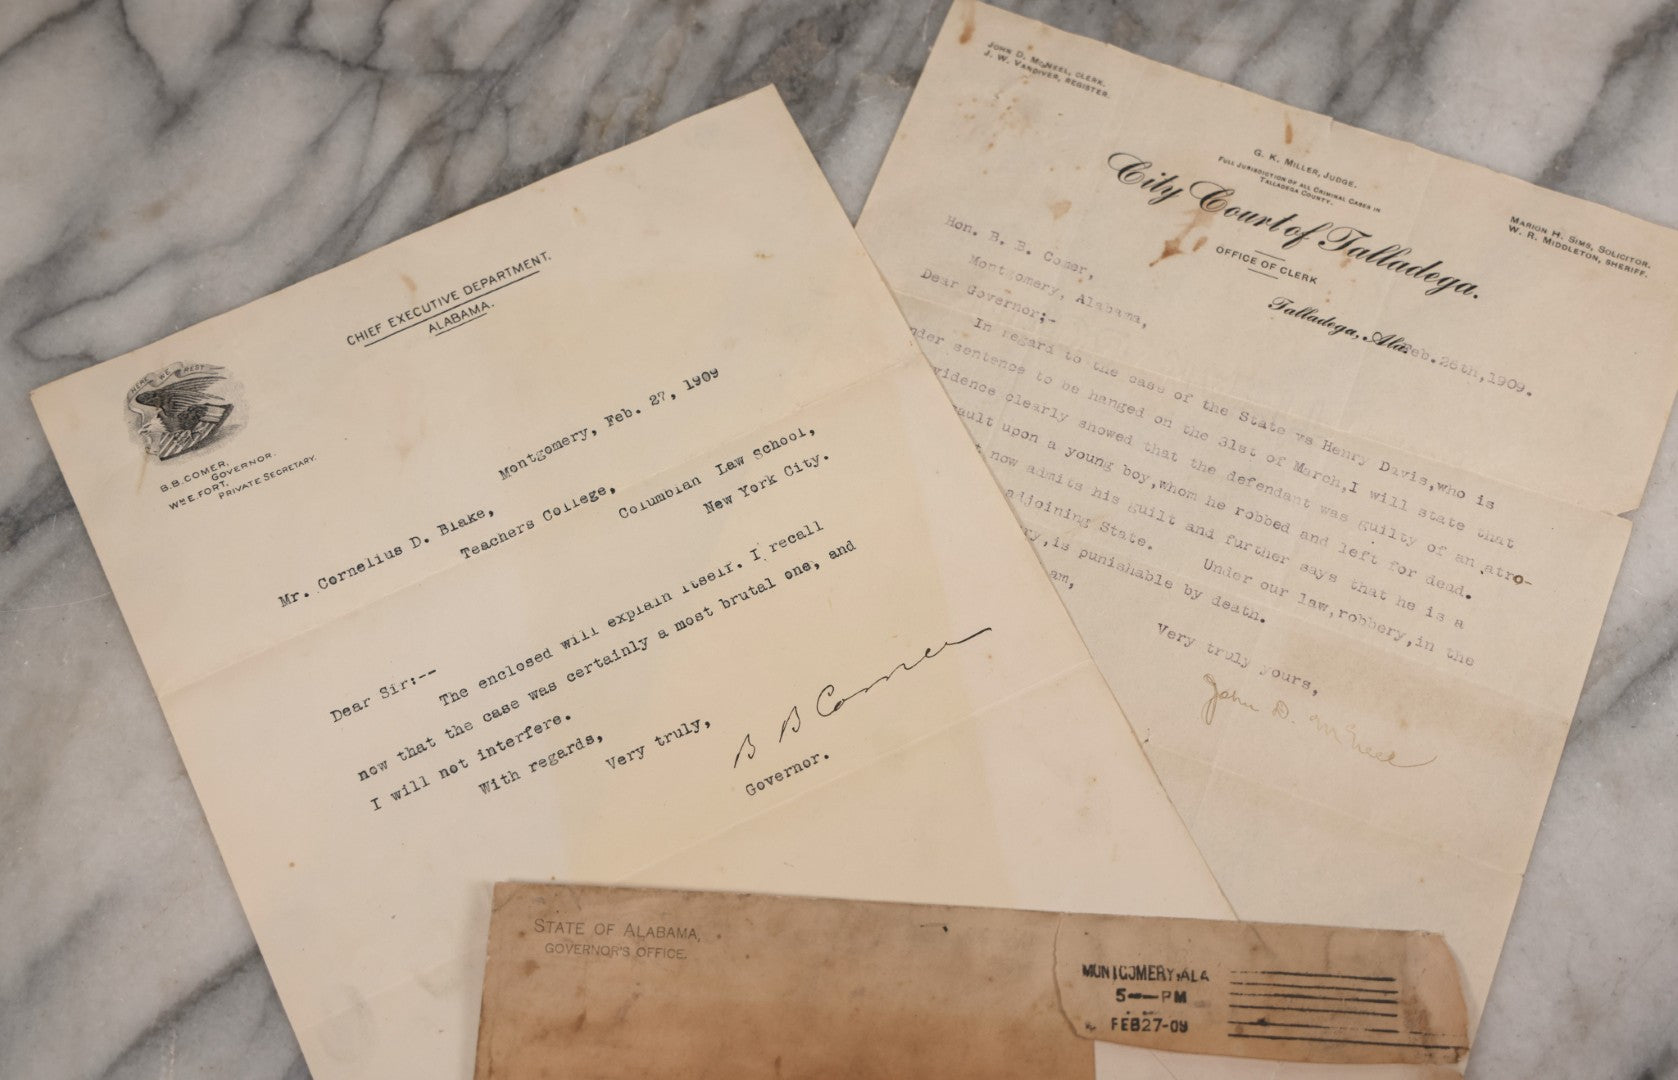 CHIEF EXECUTIVE DEPARTMENT.
ALABAMA.
HERE WE REST
B.B.COMER,
GOVERNOR.
WM E.FORT,
PRIVATE SECRETARY.
Montgomery, Feb. 27, 1909
Mr. Cornelius D. Blake,
Teachers College,
Columbian Law School,
New York City.
Dear Sir:--
The enclosed will explain itself. I recall
now that the case was certainly a most brutal one, and
I will not interfere.
With regards,
Very truly,
B B Comer
Governor.
JOHN D. McNEEL, CLERK.
J. W. VANDIVER, REGISTER.
G. K. MILLER, JUDGE.
FULL JURISDICTION OF ALL CRIMINAL CASES IN
TALLADEGA COUNTY.
City Court of Talladega.
OFFICE OF CLERK
MARION H. SIMS, SOLICITOR.
W. R. MIDDLETON, SHERIFF.
Talladega, Ala. Feb. 26th,1909.
Hon. B. B. Comer,
Montgomery, Alabama,
Dear Governor;-
In regard to the case of the State vs Henry Davis,who is
nder sentence to be hanged on the 31st of March,I will state that
vidence clearly showed that the defendant was guilty of an atro-
sault upon a young boy,whom he robbed and left for dead.
now admits his guilt and further says that he is a
adjoining State. Under our law,robbery,in the
ry,is punishable by death.
am,
Very truly yours,
John D. McNeel
STATE OF ALABAMA,
GOVERNOR'S OFFICE.
MONTGOMERY,ALA
5--PM
FEB27-09